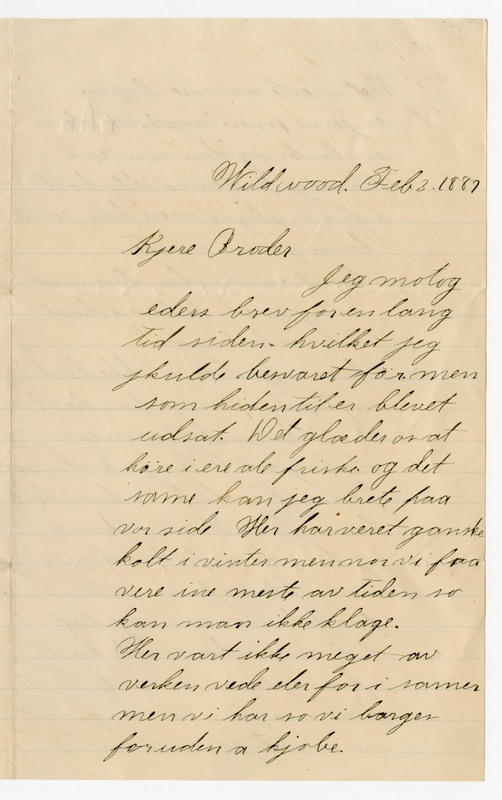 Wildwood. Feb 3. 1887
Kjere Broder
Jeg motog
eders brev for en lang
tid siden. hvilket jeg
skulde besvaret för. men
som hidentil er blevet
udsat. Det glæder os at
höre i ere ale friske og det
same kan jeg brete paa
vor side Her har veret ganske
kolt i vinter men nor vi faa
vere ine meste av tiden so
kan man ikke klage.
Her vart ikke meget av
verken vede eler for i somer
men vi har so vi barges
foruden a kjöbe.